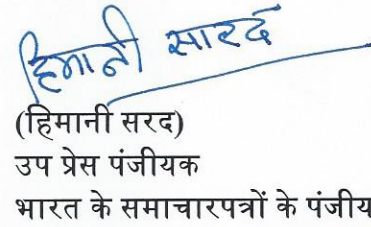 हिमानी सारद
(हिमानी सरद)
उप प्रेस पंजीयक
भारत के समाचारपत्रों के पंजीय